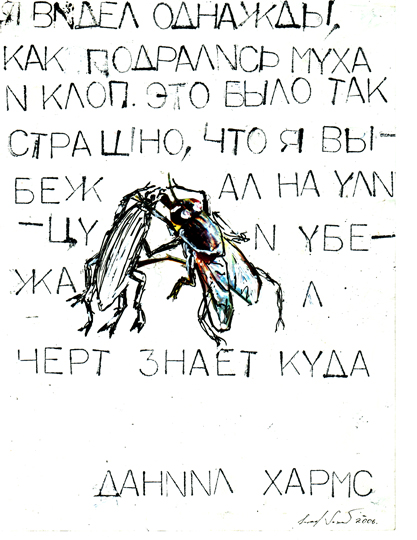 Я ВИДЕЛ ОДНАЖДЫ,
КАК ПОДРАЛИСЬ МУХА
И КЛОП. ЭТО БЫЛО ТАК
СТРАШНО, ЧТО Я ВЫ-
БЕЖ АЛ НА УЛИ
-ЦУ И УБЕ-
ЖА Л
ЧЕРТ ЗНАЕТ КУДА
ДАНИИЛ ХАРМС
2006.